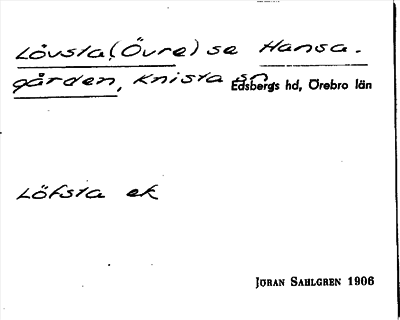 Lövsta (Övre) se Hansa-
gården, Knista sn
Edsbergs hd, Örebro län
Löfsta ek
JÖRAN SAHLGREN 1906